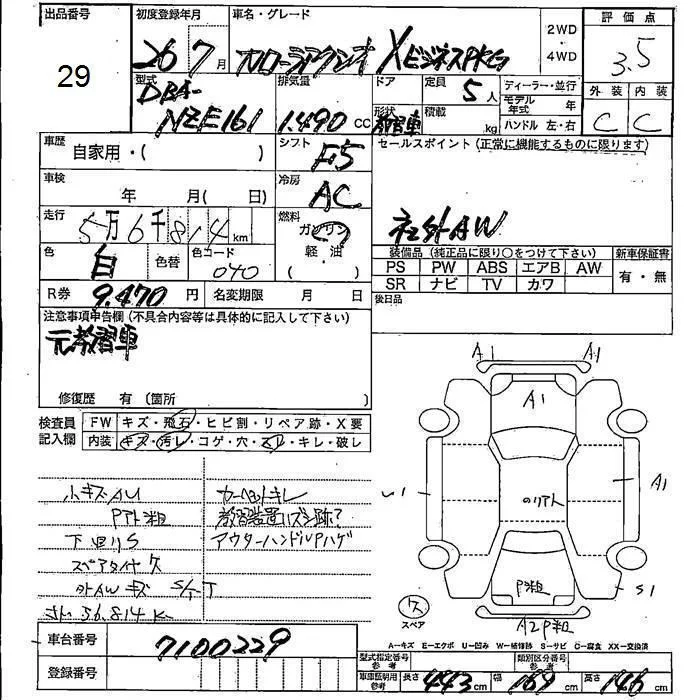 出品番号
29
初度登録年月
26 7月
車名・グレード
カローラアクシオ XビジネスPKG
2WD
・
4WD
評価点
3.5
型式
DBA-
NZE161
排気量
1.490 CC
ドア
定員
5人
ディーラー・並行
モデル年式 年
ハンドル 左・右
外装 内装
C C
形状
教習車
積載
kg
車歴
自家用・( )
シフト
F5
セールスポイント (正常に機能するものに限ります)
社外AW
車検
年 月( 日)
冷房
AC
走行
5万6千814km
燃料
ガソリン
軽・油
色
白
色替
色コード
040
装備品(純正品に限り○をつけて下さい)
新車保証書
PS PW ABS エアB AW
有・無
SR ナビ TV カワ
後日品
R券 9.470円
名変期限 月 日
注意事項申告欄(不具合内容等は具体的に記入して下さい)
元教習車
修復歴 有(箇所 )
検査員
記入欄
FW キズ・飛石・ヒビ割・リペア跡・X要
内装 キズ・汚レ・コゲ・穴・スレ・キレ・破レ
小キズ・AU
Pアト粗
下回りS
スペアタイヤ ス
外AWキズ S/T
カーペットキレ
教習装置ハズシ跡?
アウターハンドルPハゲ
車台番号
7100229
登録番号
A1 A1
A1
U1
A1
のリアト
P粗
S1
A2P粗
ス
スペア
A-キズ E-エクボ U-凹み W-補修跡 S-サビ C-腐食 XX-交換済
型式指定番号
参考
類別区分番号
参考
車庫証明用
参考
長さ 443cm
幅 169cm
高さ 146cm